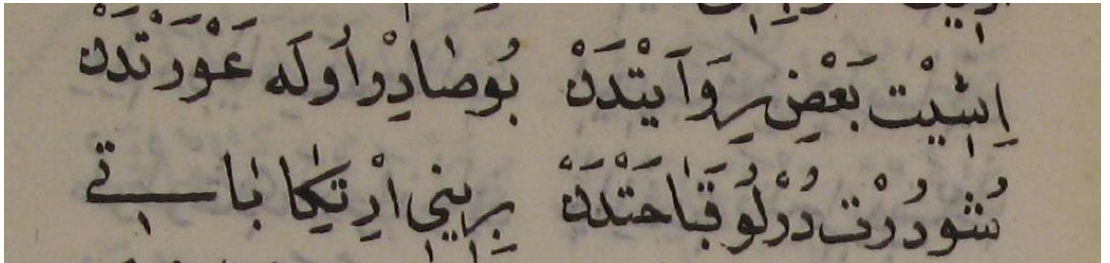 اِشِيْت بَعْضِ رِوَايَتْدَنْ بُوصَادِرْ اُولَه عَوْرَتْدَنْ
شُو دُرْت دُرْلُو قَبَاحَتْدَنْ بِرِينِي